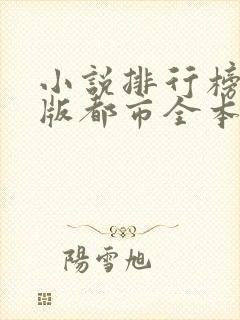 小說排行榜
版都市全本
陽雪旭